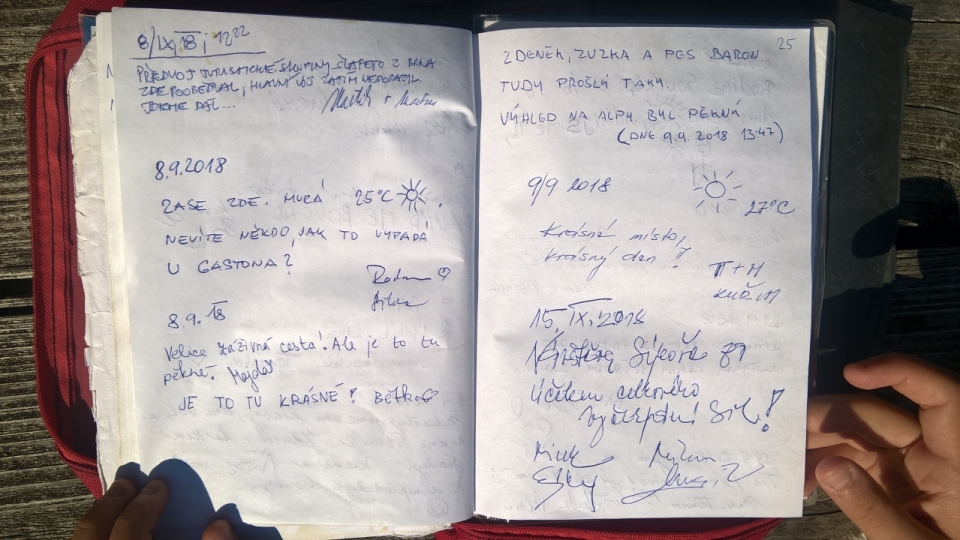 8/IX 18 ; 12 22
PŘEDVOJ TURISTICKÉ SKUPINY ŠLAPETO Z BRNA
ZDE POOBĚDVAL, HLAVNÍ VOJ ZATÍM NEDORAZIL
JDEME DÁL...
8.9.2018
ZASE ZDE. HUCÁ 25°C .
NEVÍTE NĚKDO, JAK TO VYPADÁ
U GASTONA?
Radam
Jitka
8.9.18
Velice záživná cesta! Ale je to tu
pěkné. Majda
JE TO TU KRÁSNÉ! Bětka
25
ZDENĚK, ZUZKA A PES BARON
TUDY PROŠLI TAKY.
VÝHLED NA ALPY BYL PĚKNÝ
(DNE 9.9. 2018 13:47)
9/9 2018
27°C
Krásné místo,
krásný den!
π+M
KUŘIM
15. IX. 2018
89
Účelem celkového
vyčerpání sil!